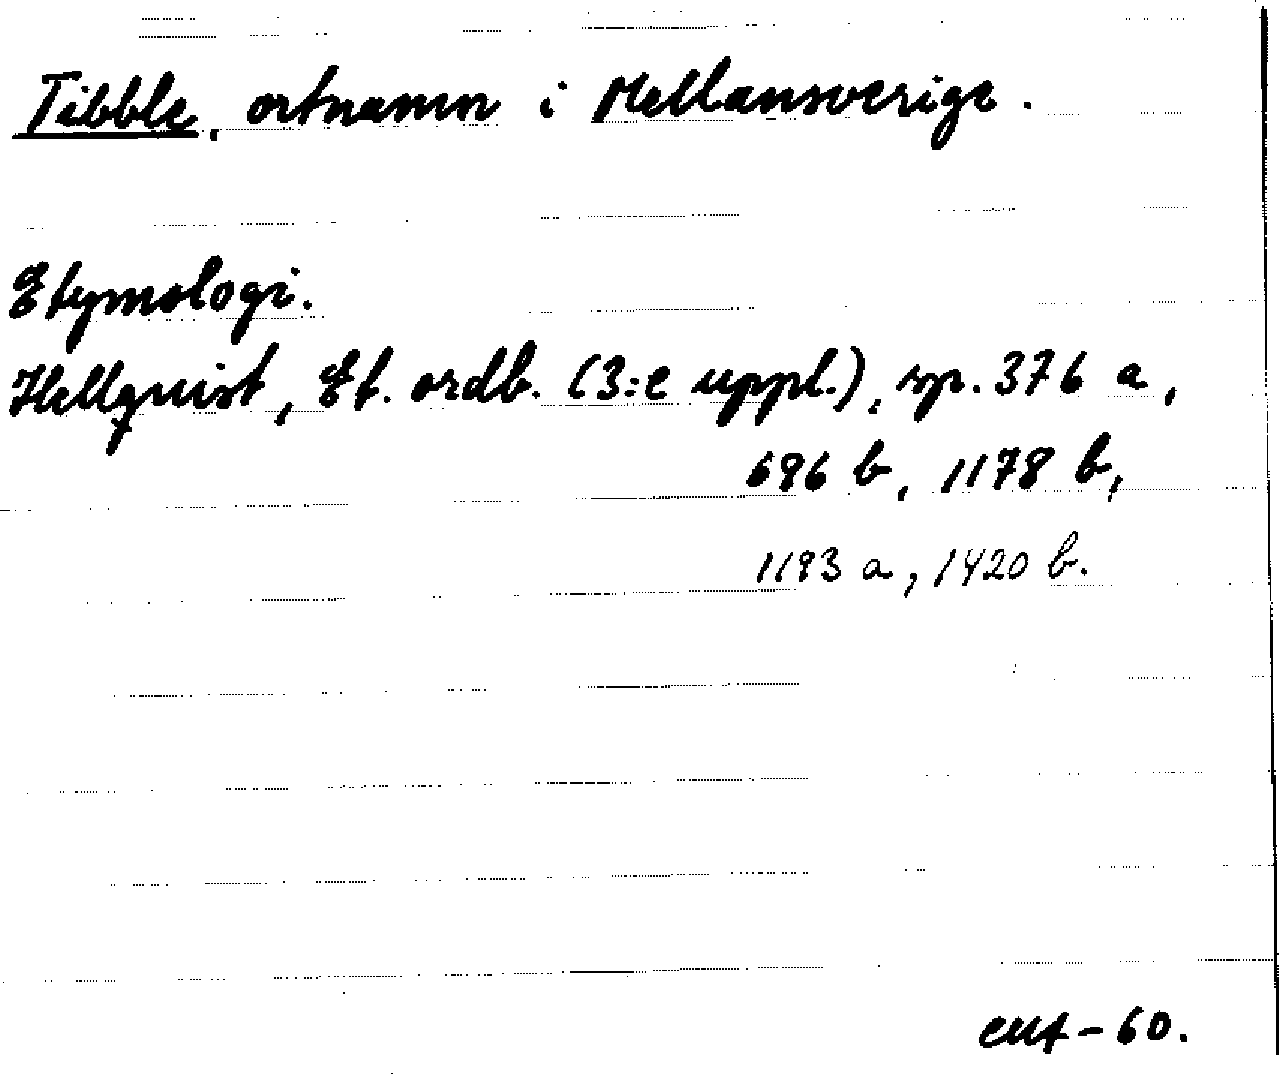 Tibble, ortnamn i Mellansverige.
Etymologi.
Hellquist, Et. ordb. (3:e uppl.), sp. 376 a,
696 b, 1178 b,
1193 a, 1420 b.
-60.